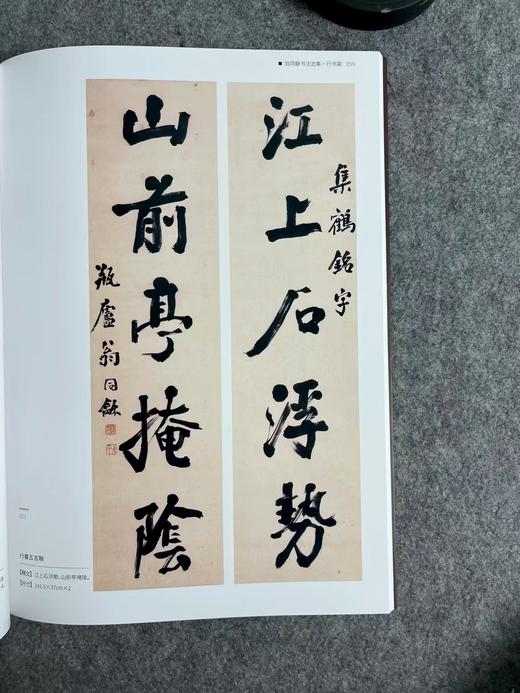 ■ 翁同龢书法选集·行书篇 059
江上石浮勢
集鶴銘字
山前亭掩陰
瓶廬翁同龢
行書五言聯
【釋文】江上石浮勢，山前亭掩陰。
【尺寸】141.5×37cm×2